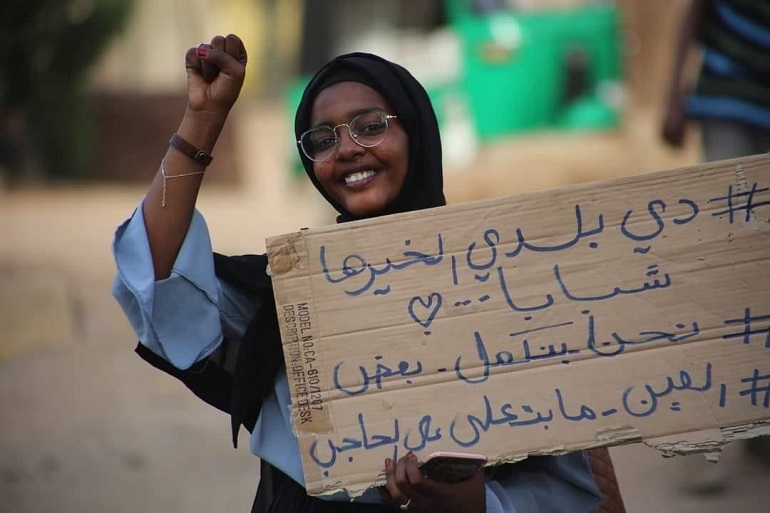 # دي بلدي الخيرها
شبابا ... ♡
# نحن بنكمل - بعض
# العين - ما بتعلى على الحاجب
MODEL NO:CA-610/1207
DESCRIPTION:OFFICE DESK